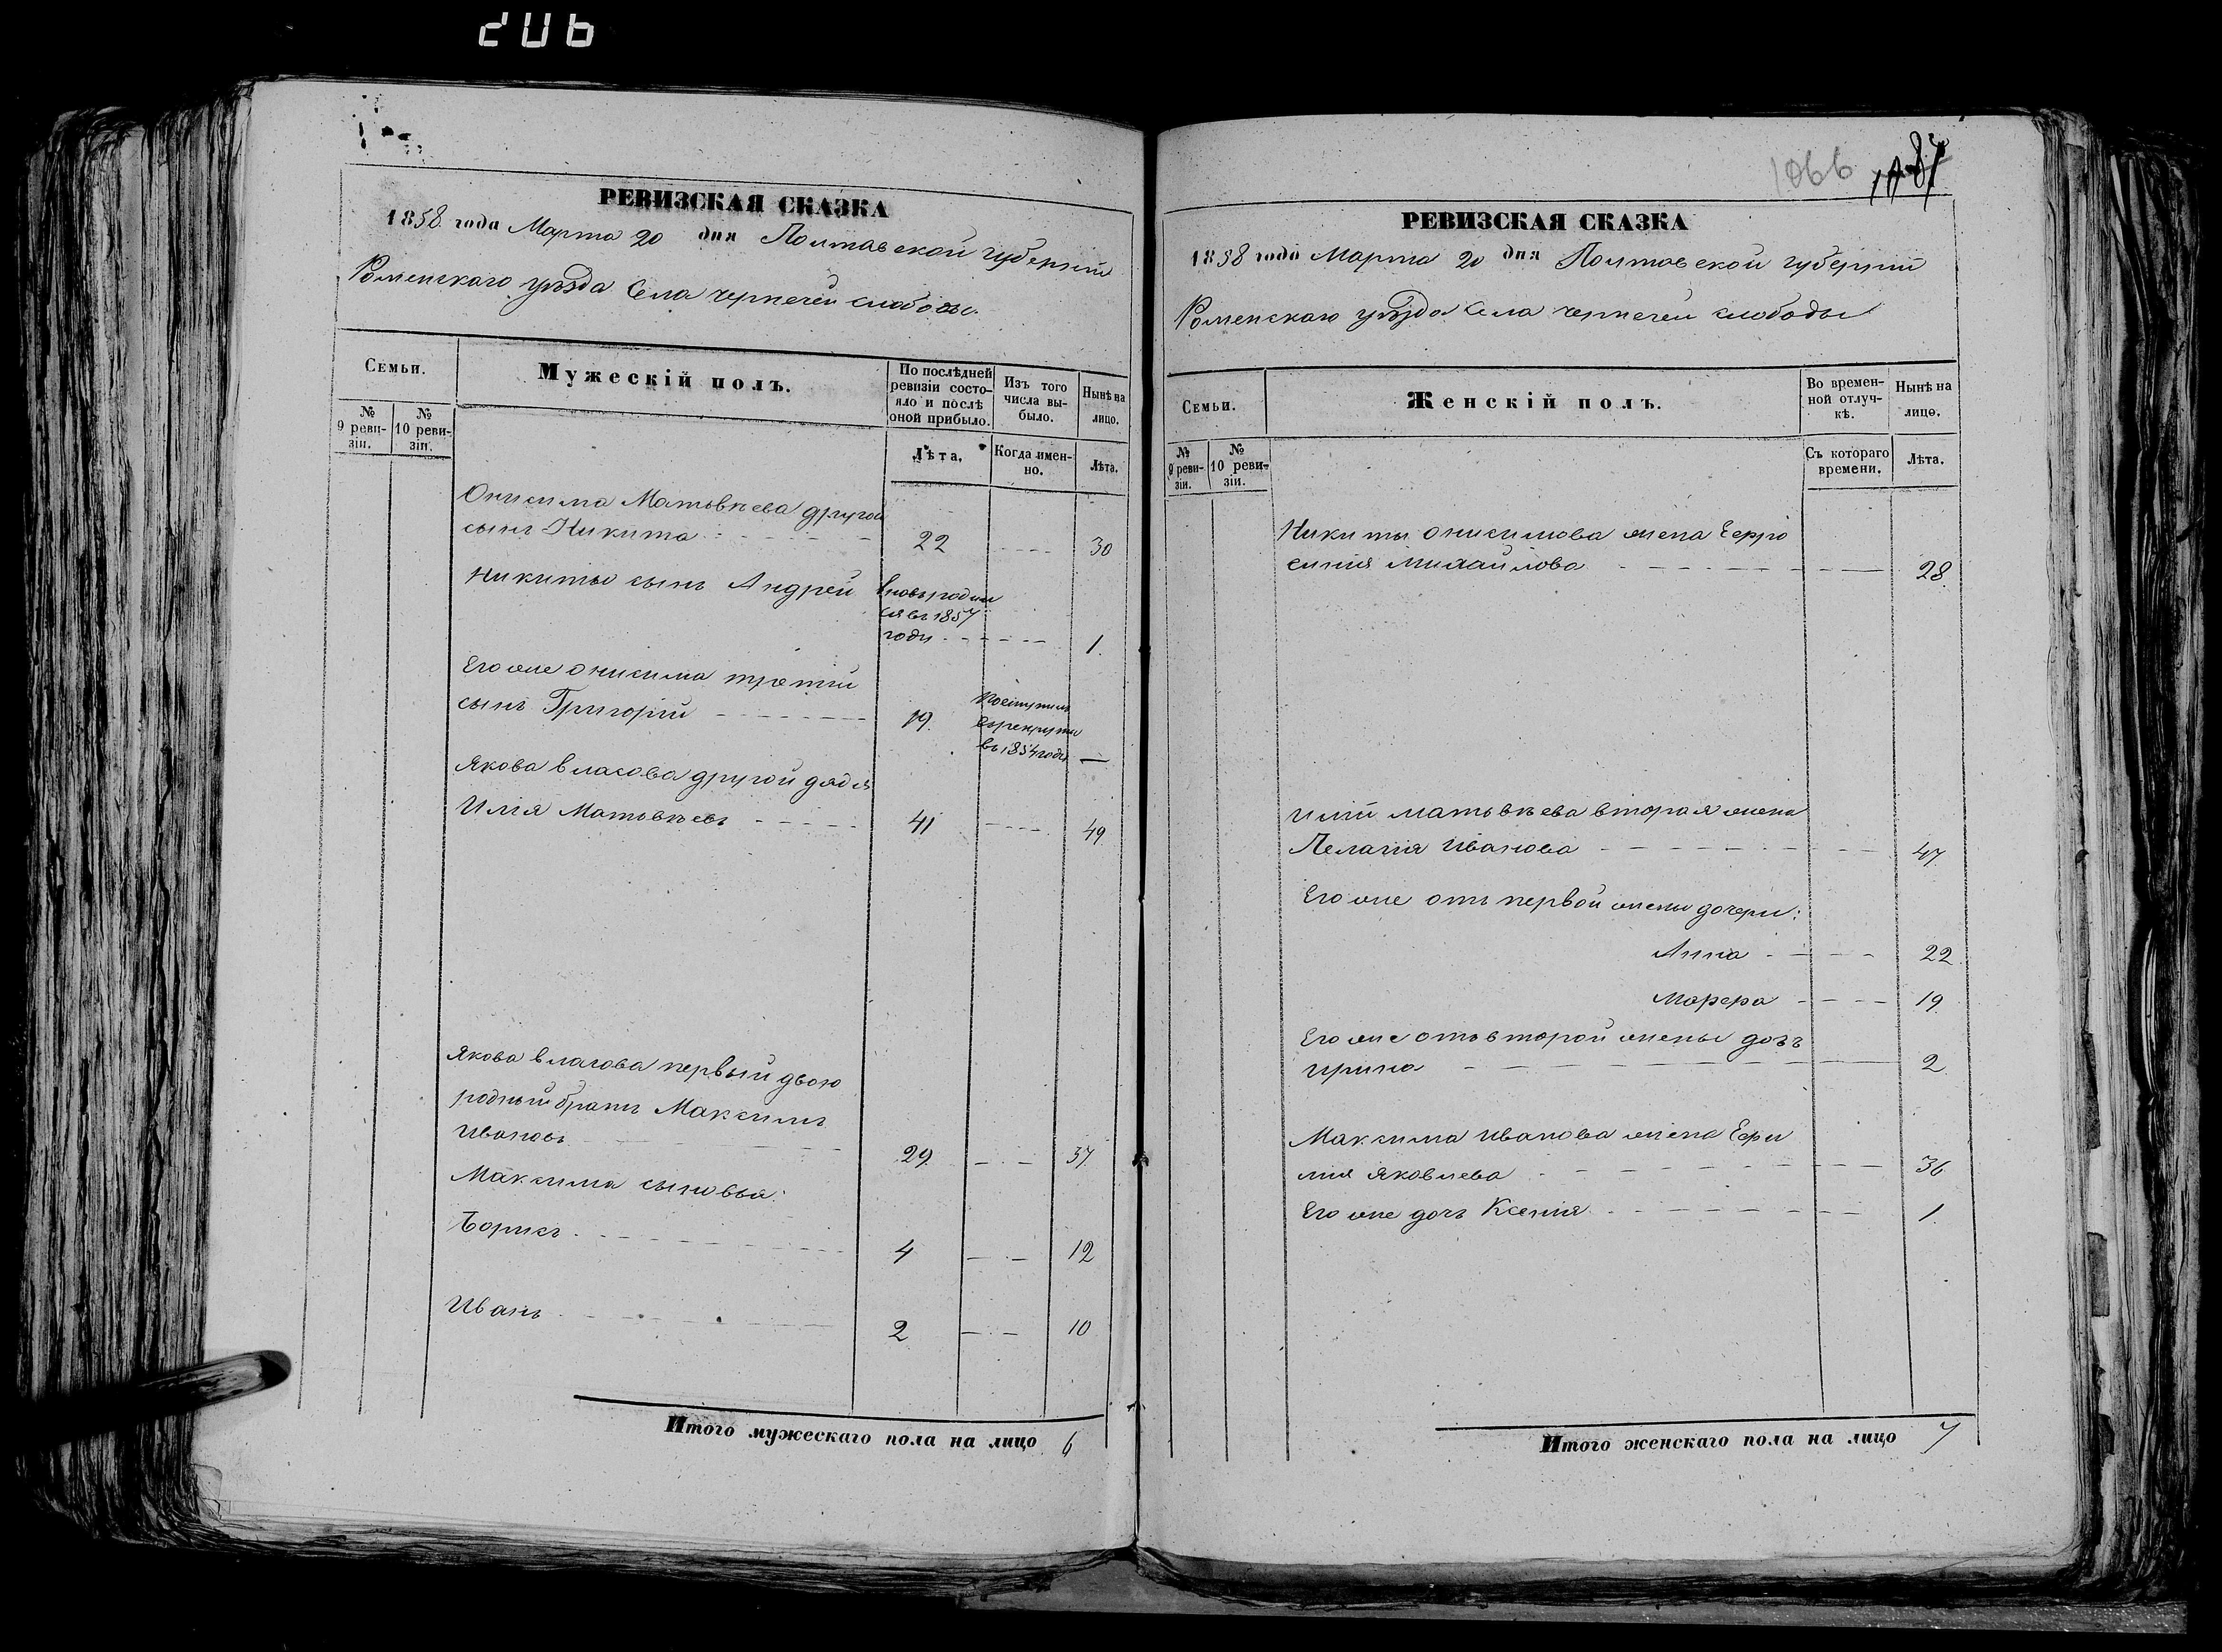 206
РЕВИЗСКАЯ СКАЗКА
1858 года Марта 20 дня Полтавской губерніи
Роменскаго уѣзда Села чернечей слободы.
Семьи.
№ 9 реви-зіи.
№ 10 реви-зіи.
Мужескій полъ.
По послѣдней
ревизіи состо-
яло и послѣ
оной прибыло.
Лѣта.
Изъ того
числа вы-
было.
Когда имен-
но.
Нынѣ на
лицо.
Лѣта.
Онисима Матвѣева другой
сынъ Никита 22 30
Никиты сынъ Андрей вновь родил
ся въ 1857
году 1.
Его же Онисима третій
сынъ Григорій 19. Поступилъ
въ рекруты
въ 1854 году
Якова власова другой дядя
Илія Матвѣевъ 41 49
Якова власова первый двою
родный братъ Максимъ
Ивановъ 29. 37
Максима сыновья:
Борисъ 4 12
Иванъ 2 10
Итого мужескаго пола на лицо 6
1066
РЕВИЗСКАЯ СКАЗКА
1858 года Марта 20 дня Полтавской губерніи
Роменскаго уѣзда Села чернечей слободы
Семьи.
№ 9 реви-зіи.
№ 10 реви-зіи.
Женскій полъ.
Во времен-
ной отлуч-
кѣ.
Съ котораго
времени.
Нынѣ на
лицо.
Лѣта.
Никиты онисимова жена Ефро
синія Михайлова 28
Иліи матвѣева вторая жена
Пелагія Иванова 47
Его же отъ первой жены дочери:
Анна 22
Марфа 19
Его же отъ второй жены дочь
Ирина 2
Максима Иванова жена Ефи
мія Яковлева 36
Его же дочь Ксенія 1.
Итого женскаго пола на лицо 7